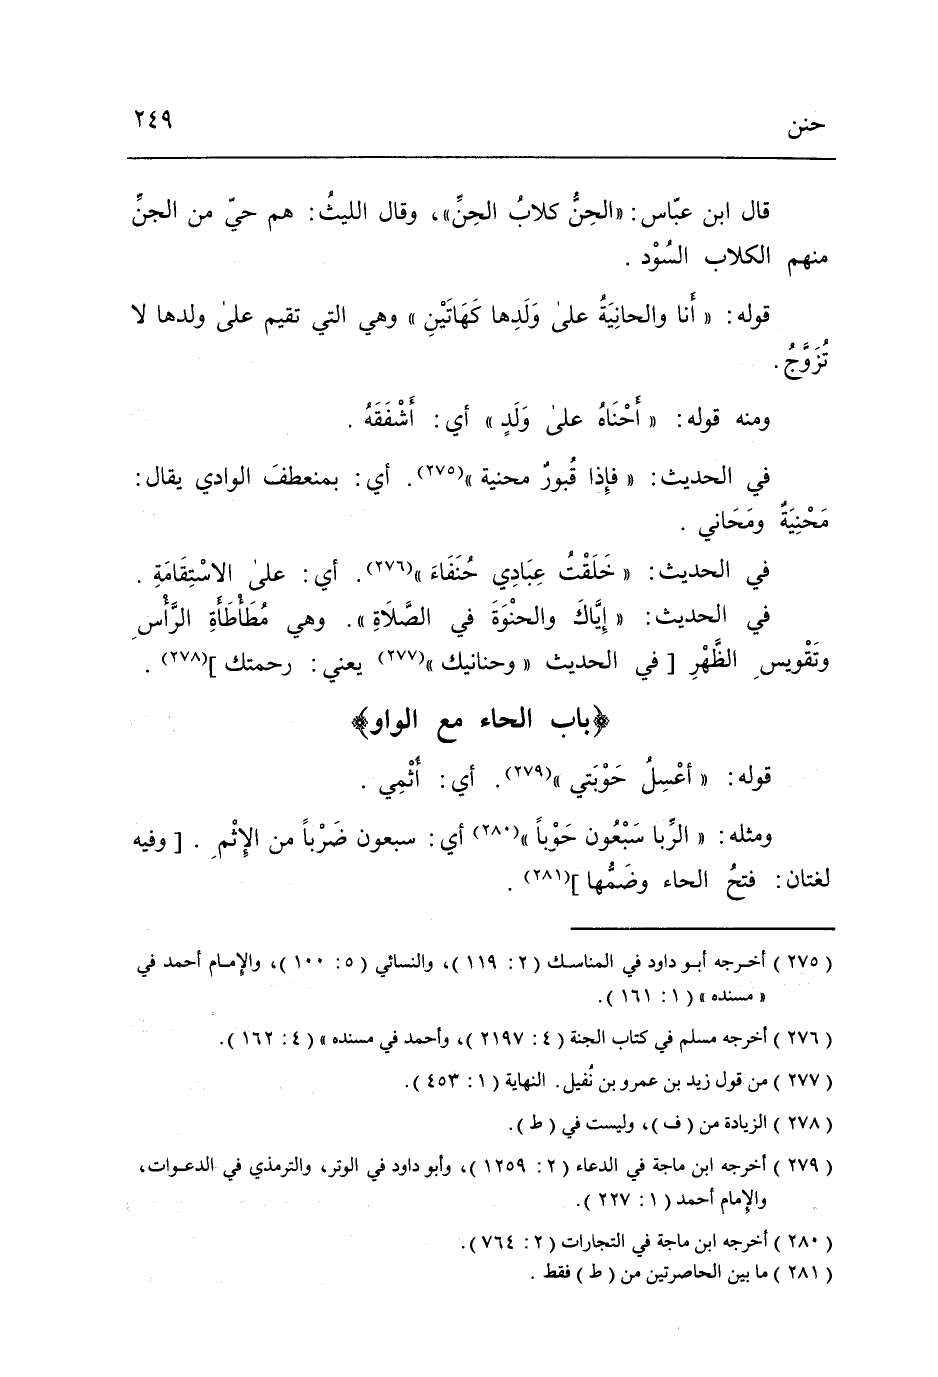 حنن ٢٤٩
قال ابن عبّاس: «الحِنُّ كلابُ الجِنِّ»، وقال الليثُ: هم حيّ من الجنِّ
منهم الكلاب السُوْد .
قوله: « أَنا والحانِيَةُ علىٰ وَلَدِها كَهَاتَيْنِ » وهي التي تقيم علىٰ ولدها لا
تُزَوَّجُ.
ومنه قوله: « أَحْنَاهُ علىٰ وَلَدٍ » أي: أَشْفَقَهُ .
في الحديث: « فإِذا قُبورٌ محنية »(٢٧٥). أي: بمنعطفَ الوادي يقال:
مَحْنِيَةٌ ومَحَاني .
في الحديث: « خَلَقْتُ عِبَادِي حُنَفَاءَ »(٢٧٦). أي: علىٰ الاسْتِقَامَةِ .
في الحديث: « إِيَّاكَ والحنْوَةَ في الصَّلَاةِ ». وهي مُطَأْطَأَةِ الرَّأْسِ
وتَقْويسِ الظَّهْرِ [ في الحديث « وحنانيك »(٢٧٧) يعني: رحمتك ](٢٧٨) .
﴿باب الحاء مع الواو﴾
قوله: « أغْسِلُ حَوْبَتي »(٢٧٩). أي: أُثْمِي .
ومثله: « الرِّبا سَبْعُون حَوْباً »(٢٨٠) أي: سبعون ضَرْباً من الإِثْمِ . [ وفيه
لغتان: فتحُ الحاء وضَمُّها ](٢٨١) .
( ٢٧٥ ) أخرجه أبو داود في المناسك ( ٢: ١١٩ )، والنسائي ( ٥: ١٠٠ )، والإمام أحمد في
« مسنده » ( ١: ١٦١ ).
( ٢٧٦ ) أخرجه مسلم في كتاب الجنة ( ٤: ٢١٩٧ )، وأحمد في مسنده » ( ٤: ١٦٢ ).
( ٢٧٧ ) من قول زيد بن عمرو بن نُفيل. النهاية ( ١: ٤٥٣ ).
( ٢٧٨ ) الزيادة من ( ف )، وليست في ( ط ).
( ٢٧٩ ) أخرجه ابن ماجة في الدعاء ( ٢: ١٢٥٩ )، وأبو داود في الوتر، والترمذي في الدعوات،
والإمام أحمد ( ١: ٢٢٧ ).
( ٢٨٠ ) أخرجه ابن ماجة في التجارات ( ٢: ٧٦٤ ).
( ٢٨١ ) ما بين الحاصرتين من ( ط ) فقط .